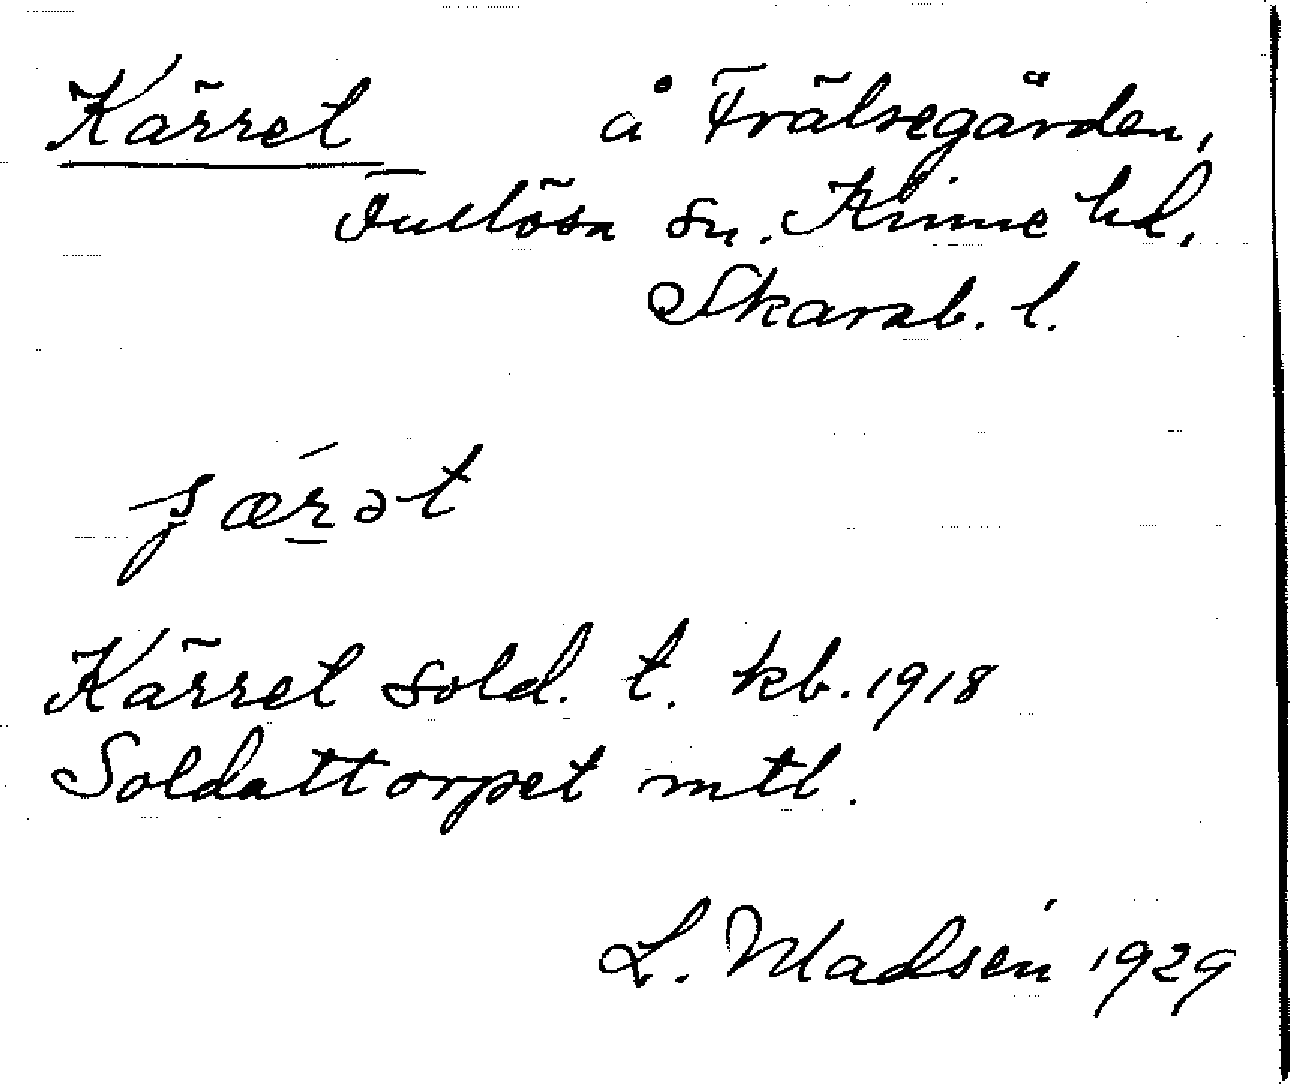 Kärret å Frälsegården,
Fullösa sn. Kinne hd,
Skarab. l.
ʂǽrət
Kärret sold. t. kb. 1918
Soldattorpet mtl.
L. Madsén 1929